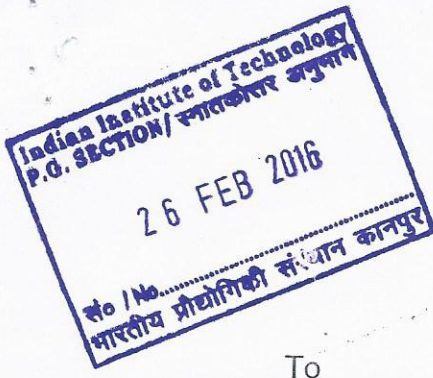 Indian Institute of Technology
P.G. SECTION/ स्नातकोत्तर अनुभाग
26 FEB 2016
सं० /No.....................................
भारतीय प्रौद्योगिकी संस्थान कानपुर
To